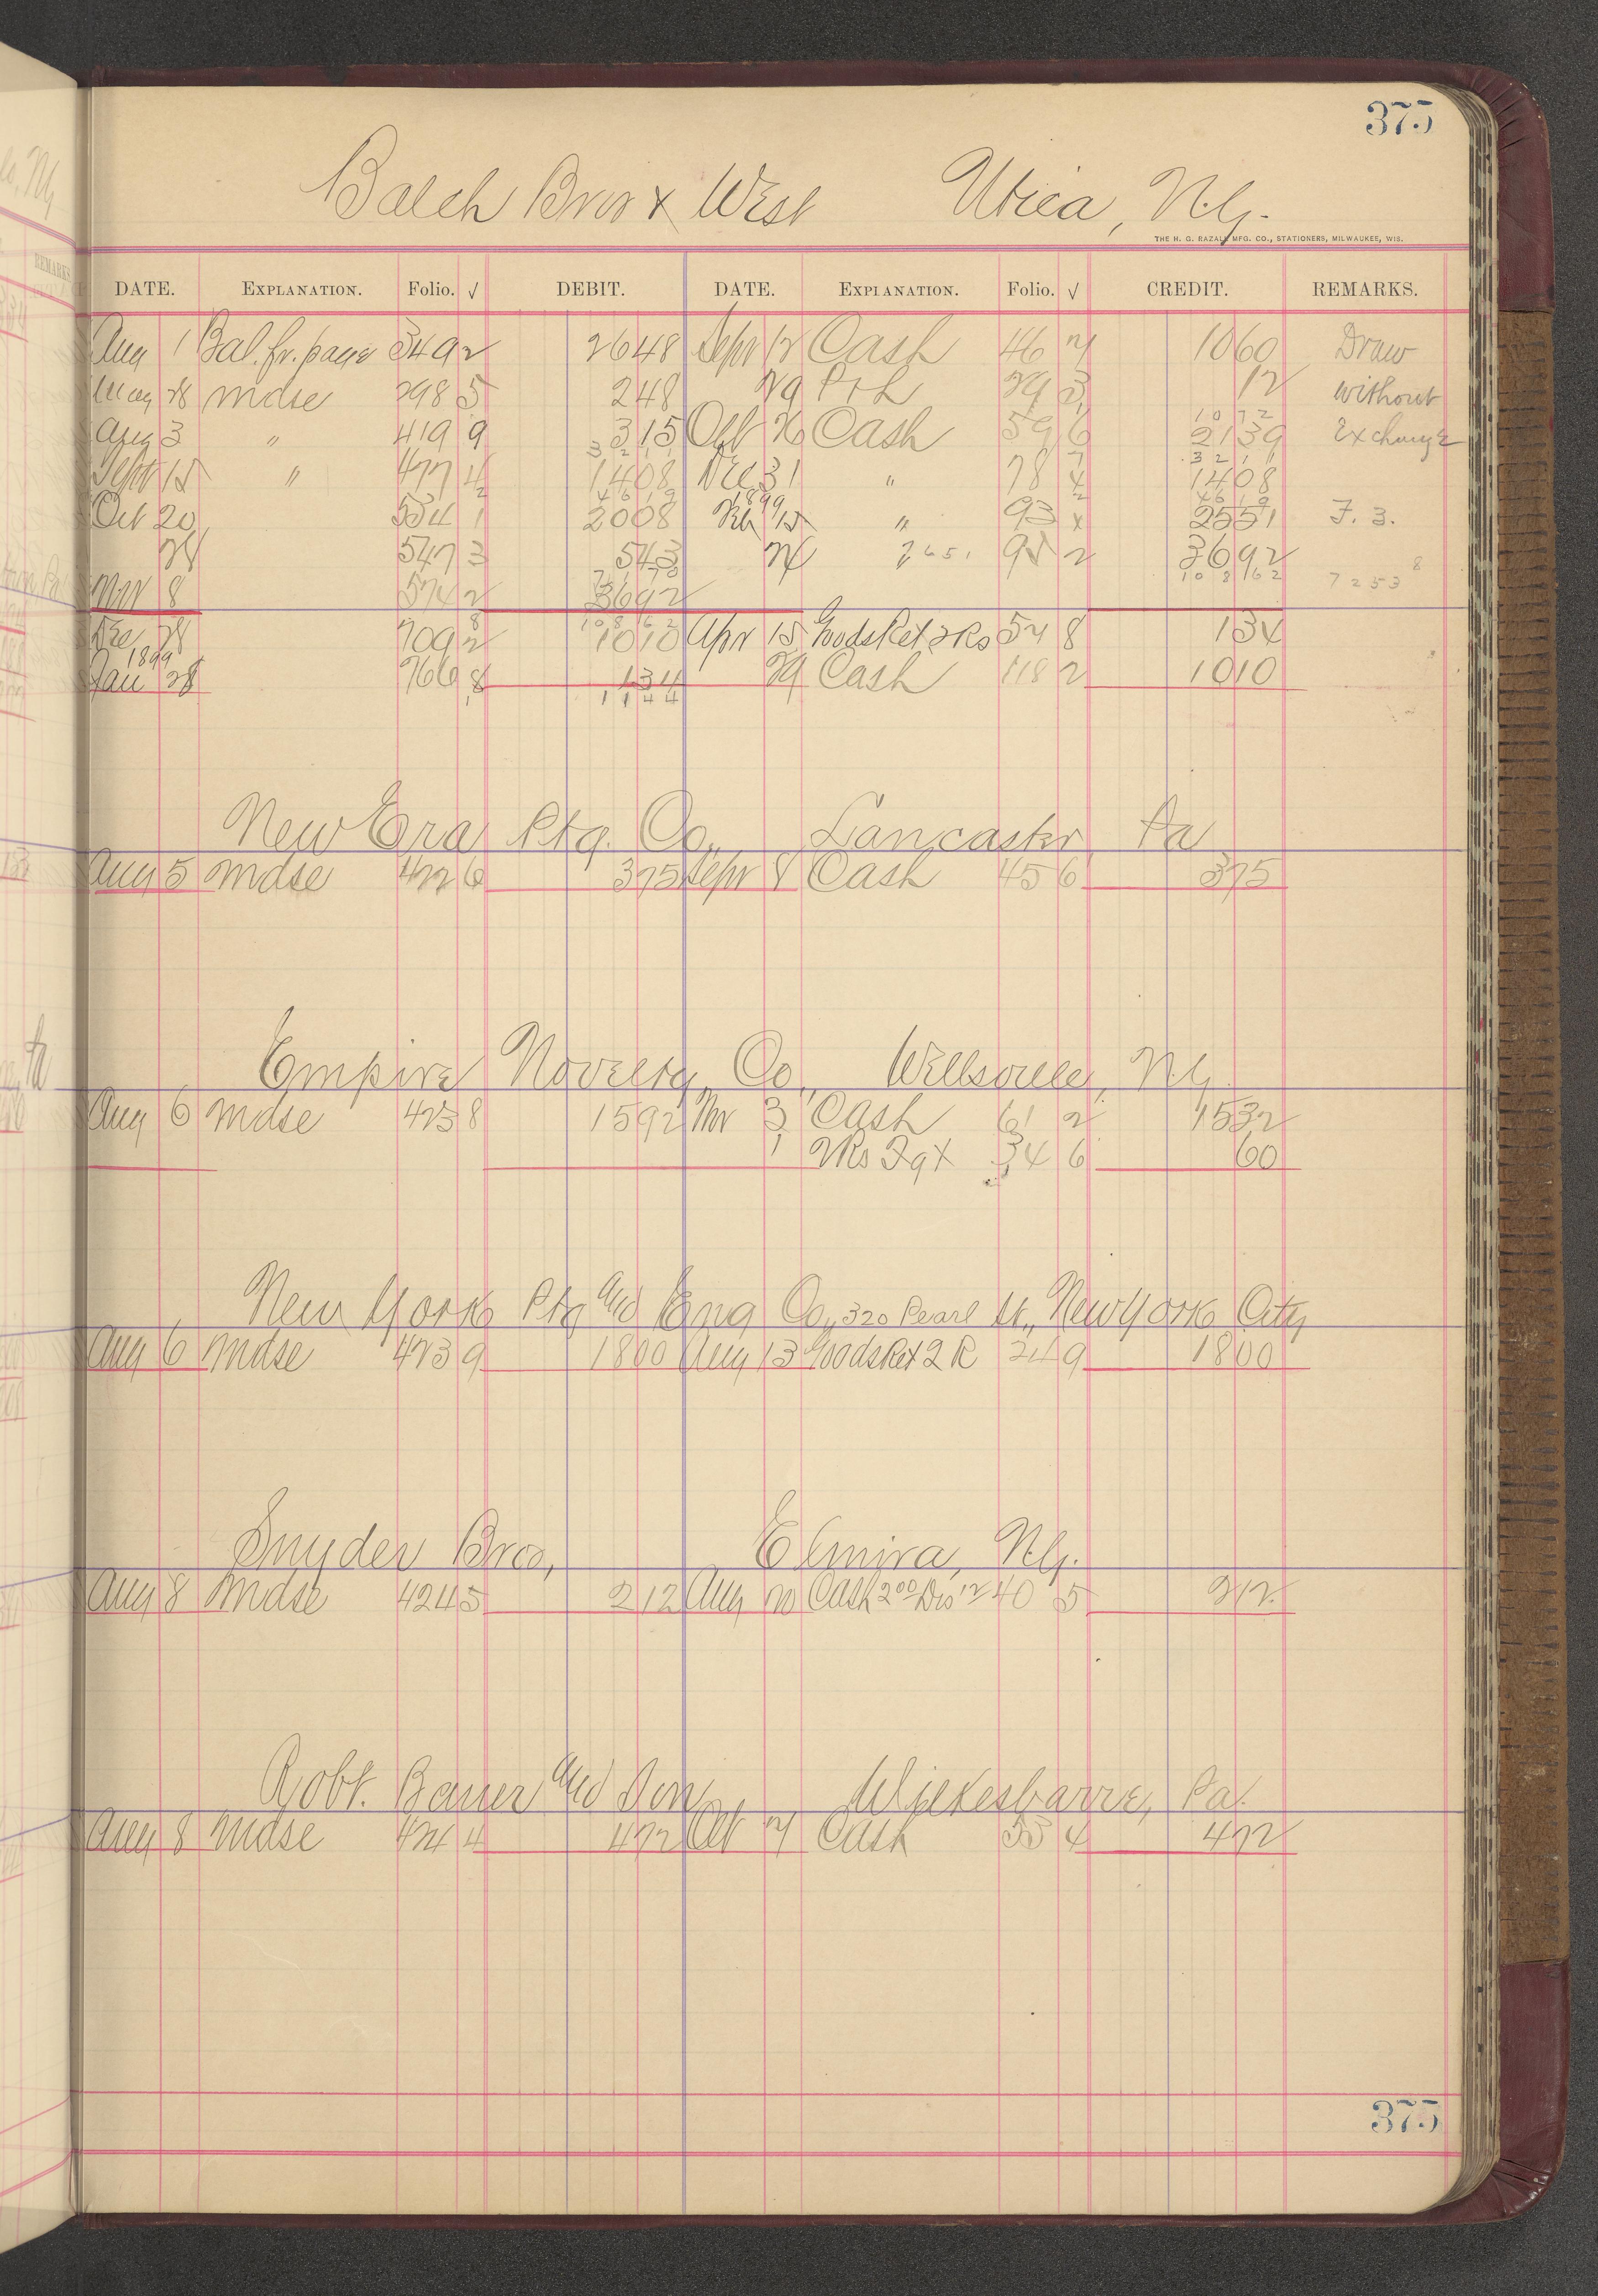 375
Balch Bros & West Utica, N.Y.
THE H. G. RAZALL MFG. CO., STATIONERS, MILWAUKEE, WIS.
DATE. EXPLANATION. Folio. √ DEBIT. DATE. EXPLANATION. Folio. √ CREDIT. REMARKS.
Aug 1 Bal. fr. page 349 2 2648 Sepr 12 Cash 46 7 1060 Draw
Aug 28 Mdse 298 5 248 29 P+L 29 3 12 without
Aug 3 " 419 9 315 Oct 26 Cash 59 6 2139 Exchange
Sepr 15 " 477 4 1408 Dec 31 " 78 4 1408
Oct 20 534 1 2008 1899 Feb 15 " 93 x 2551 F. 3.
28 547 3 543 24 " 7651 95 2 3692
Nov 8 574 2 3692 7253
Dec 28 709 2 1010 Apr 15 Goods Ret 2Rs 54 8 134
1899
Jan 28 766 8 134 29 Cash 118 2 1010
1144
New Era Ptg. Co., Lancaster, Pa
Aug 5 Mdse 422 6 375 Sepr 8 Cash 45 6 375
Empire Novelty Co., Wellsville, N.Y.
Aug 6 Mdse 423 8 1592 Nov 3 Cash 61 2 1532
1 2Rs Fgt 34 6 60
New York Ptg and Eng Co., 320 Pearl St., New York City
Aug 6 Mdse 423 9 1800 Aug 13 Goods Ret 2 R 24 9 1800
Snyder Bros, Elmira, N.Y.
Aug 8 Mdse 424 5 212 Aug 20 Cash 2 00 Dis 12 40 5 212
Robt. Bauer and Son, Wilkesbarre, Pa.
Aug 8 Mdse 424 4 472 Oct 7 Cash 53 4 472
375